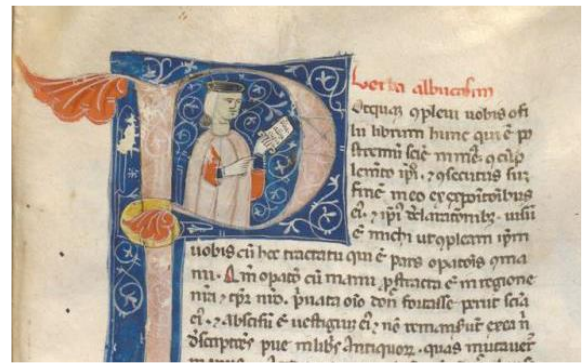 Verba albucasim
Ostquaʒ ɔpleui uobis o fi
lii librum hunc qui ē po
stremũ sciē
plemto ipi⁹. ⁊ ɔsecutus sũ
finē in eo ex expoitōibus
ei⁹. ⁊ ipi⁹ declaratōnibʒ. uisũ
ē michi ut ɔpleam ipm
uobis cũ hoc tractatu qui ē pars opatōis cũ ma
nu. opatō cũ manu pstrata ē in regione
nrã ⁊ tpr nrõ. puata oĩo donec fortasse periit sciã
ei⁹. ⁊ abscisũ ē uestigiũ ei⁹ ⁊ nõ remanserũt ex ea ñ
dscriptões pue in libris antiquorꝫ. quas mutauerũt
manus